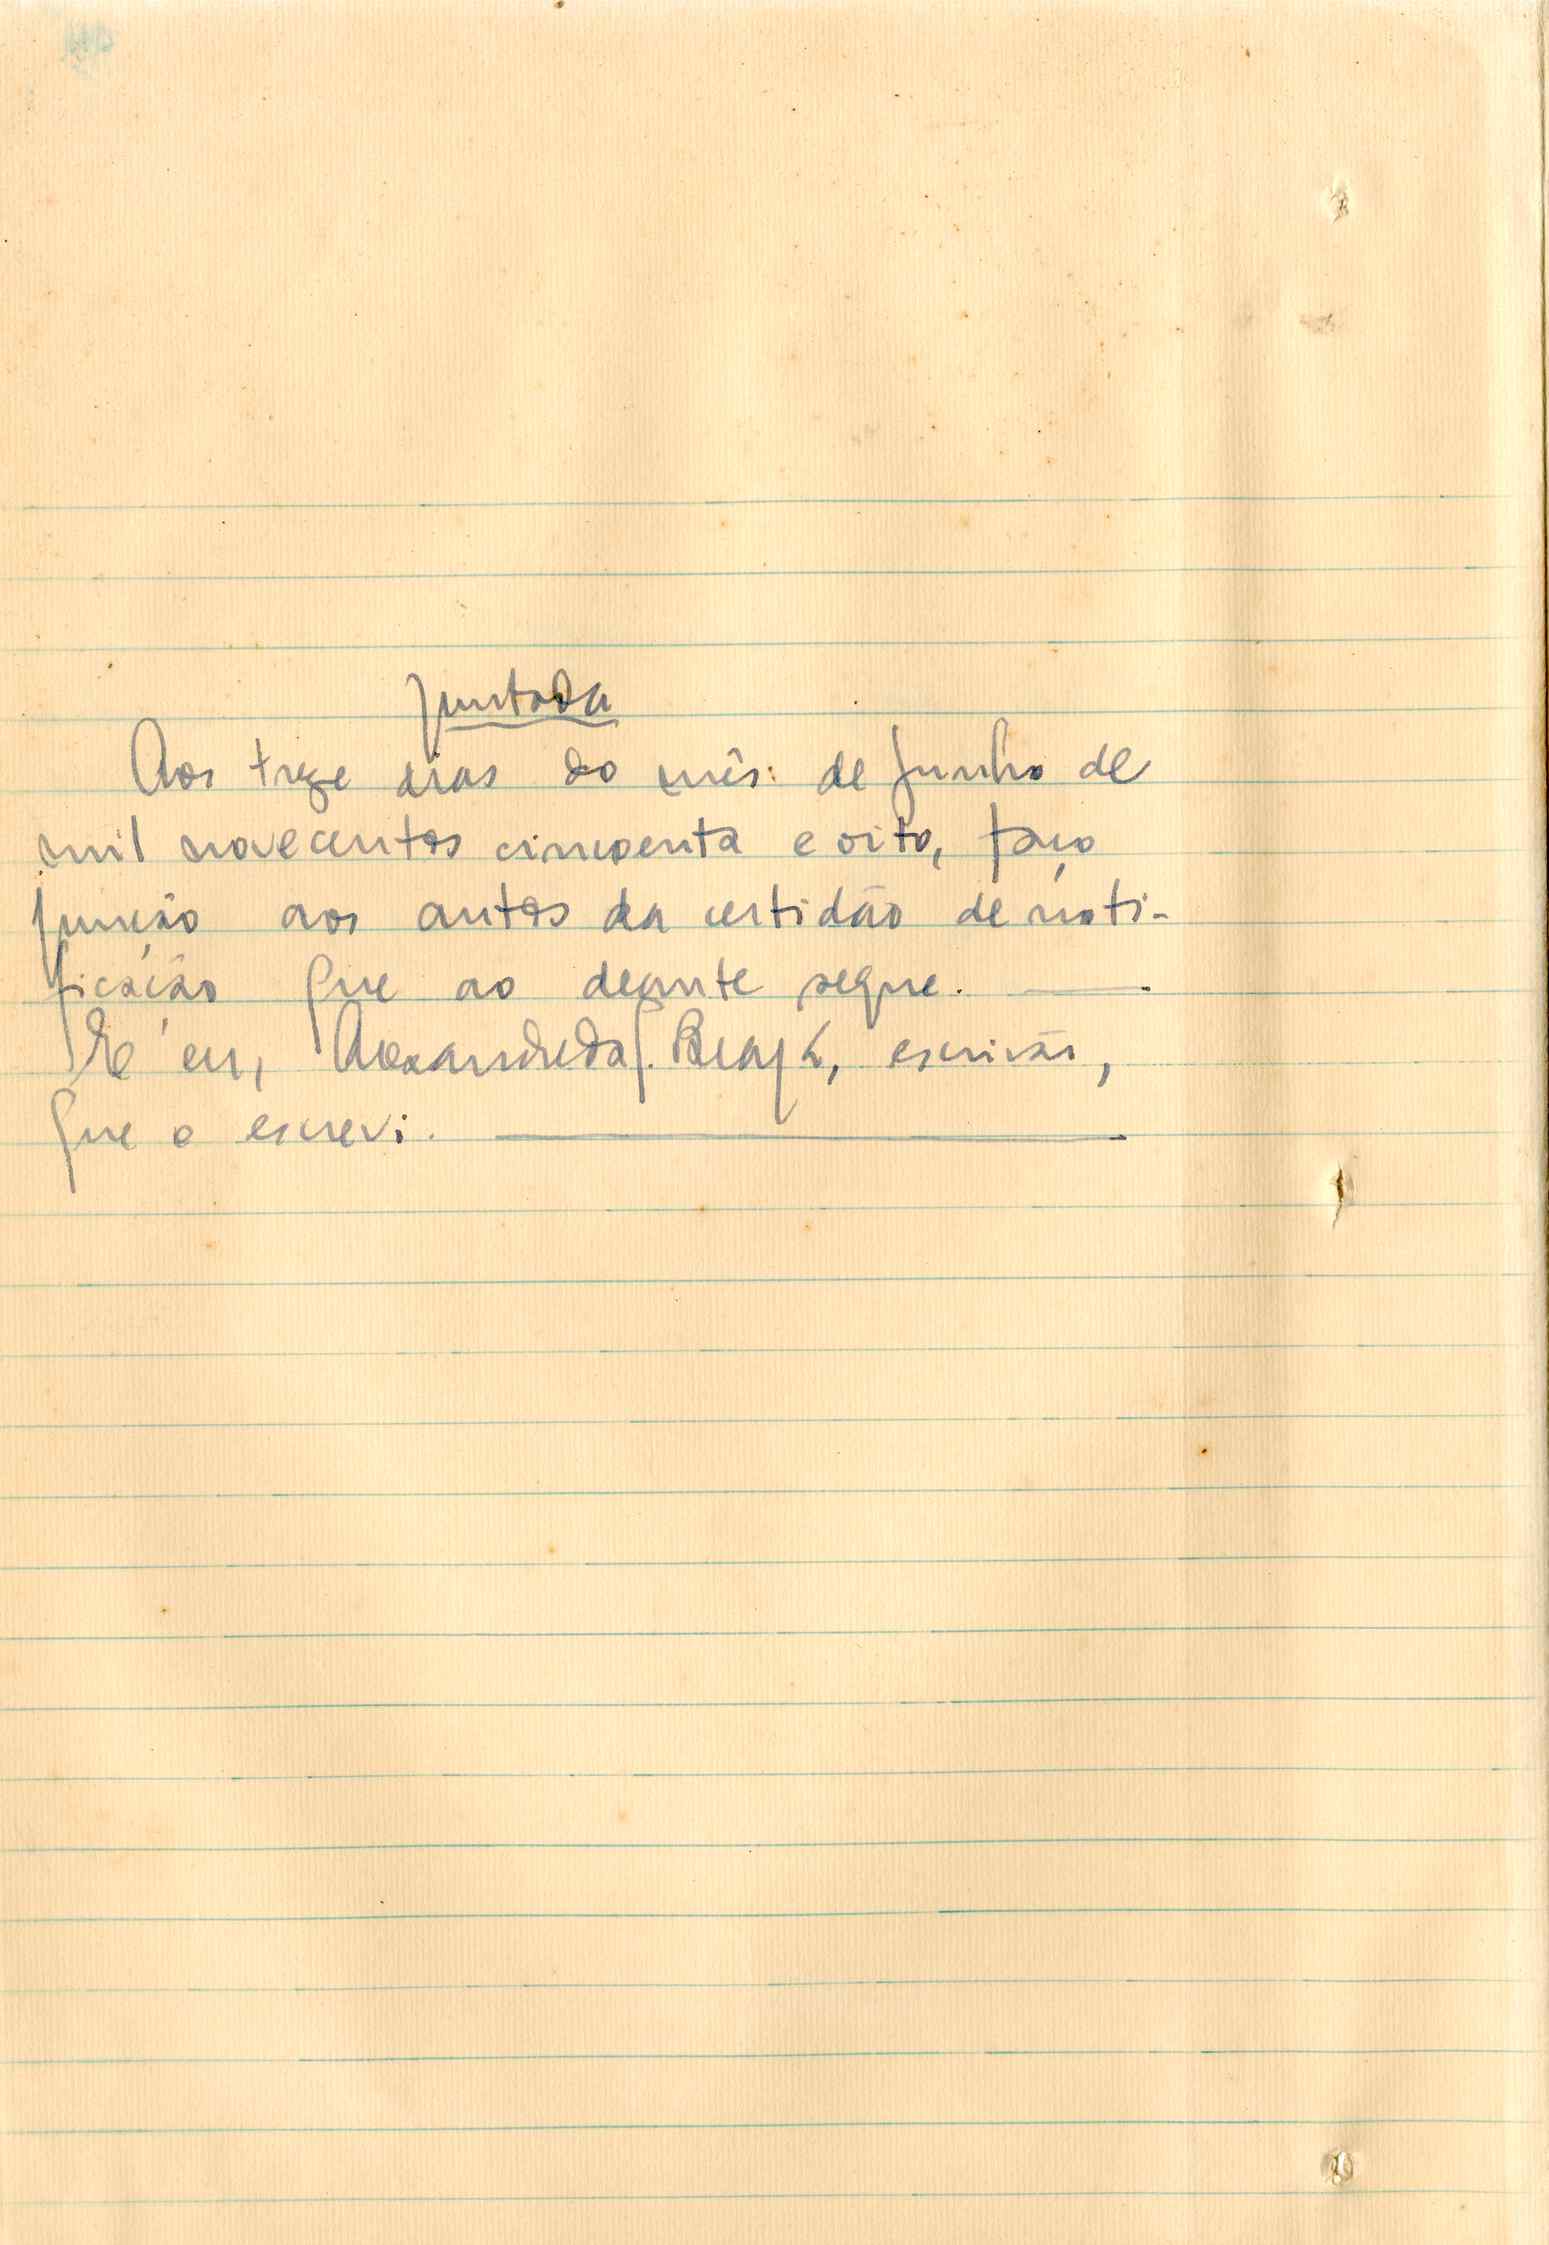 Juntada
Aos treze dias do mês de junho de
mil novecentos cincoenta e oito, faço
junção aos autos da certidão de noti-
ficação que ao deante segue.
E eu, escrivão,
que o escrevi.